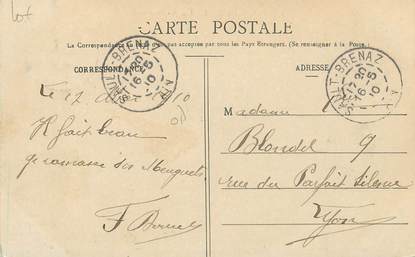 lot
CARTE POSTALE
La Correspondance au recto n'est pas acceptée par tous les Pays Étrangers. (Se renseigner à la Poste.)
CORRESPONDANCE
ADRESSE
SAULT-BRENAZ
16-5
10
AIN
SAULT-BRENAZ
16-5
10
Le 17 10
Il fait beau
je ramasse des Muguets
F
Madame
Blondel 9
rue du Parfait Silence
Lyon